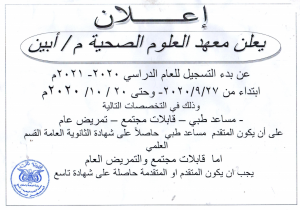 إعـــلان
يعلن معهد العلوم الصحية م / أبين
عن بدء التسجيل للعام الدراسي ٢٠٢٠- ٢٠٢١م
ابتداء من ٢٠٢٠/٩/٢٧- وحتى ٢٠ / ١٠ / ٢٠٢٠م
وذلك في التخصصات التالية
- مساعد طبي – قابلات مجتمع – تمريض عام
على أن يكون المتقدم مساعد طبي حاصلاً على شهادة الثانوية العامة القسم
العلمي
اما قابلات مجتمع والتمريض العام
يجب ان يكون المتقدم او المتقدمة حاصلة على شهادة تاسع